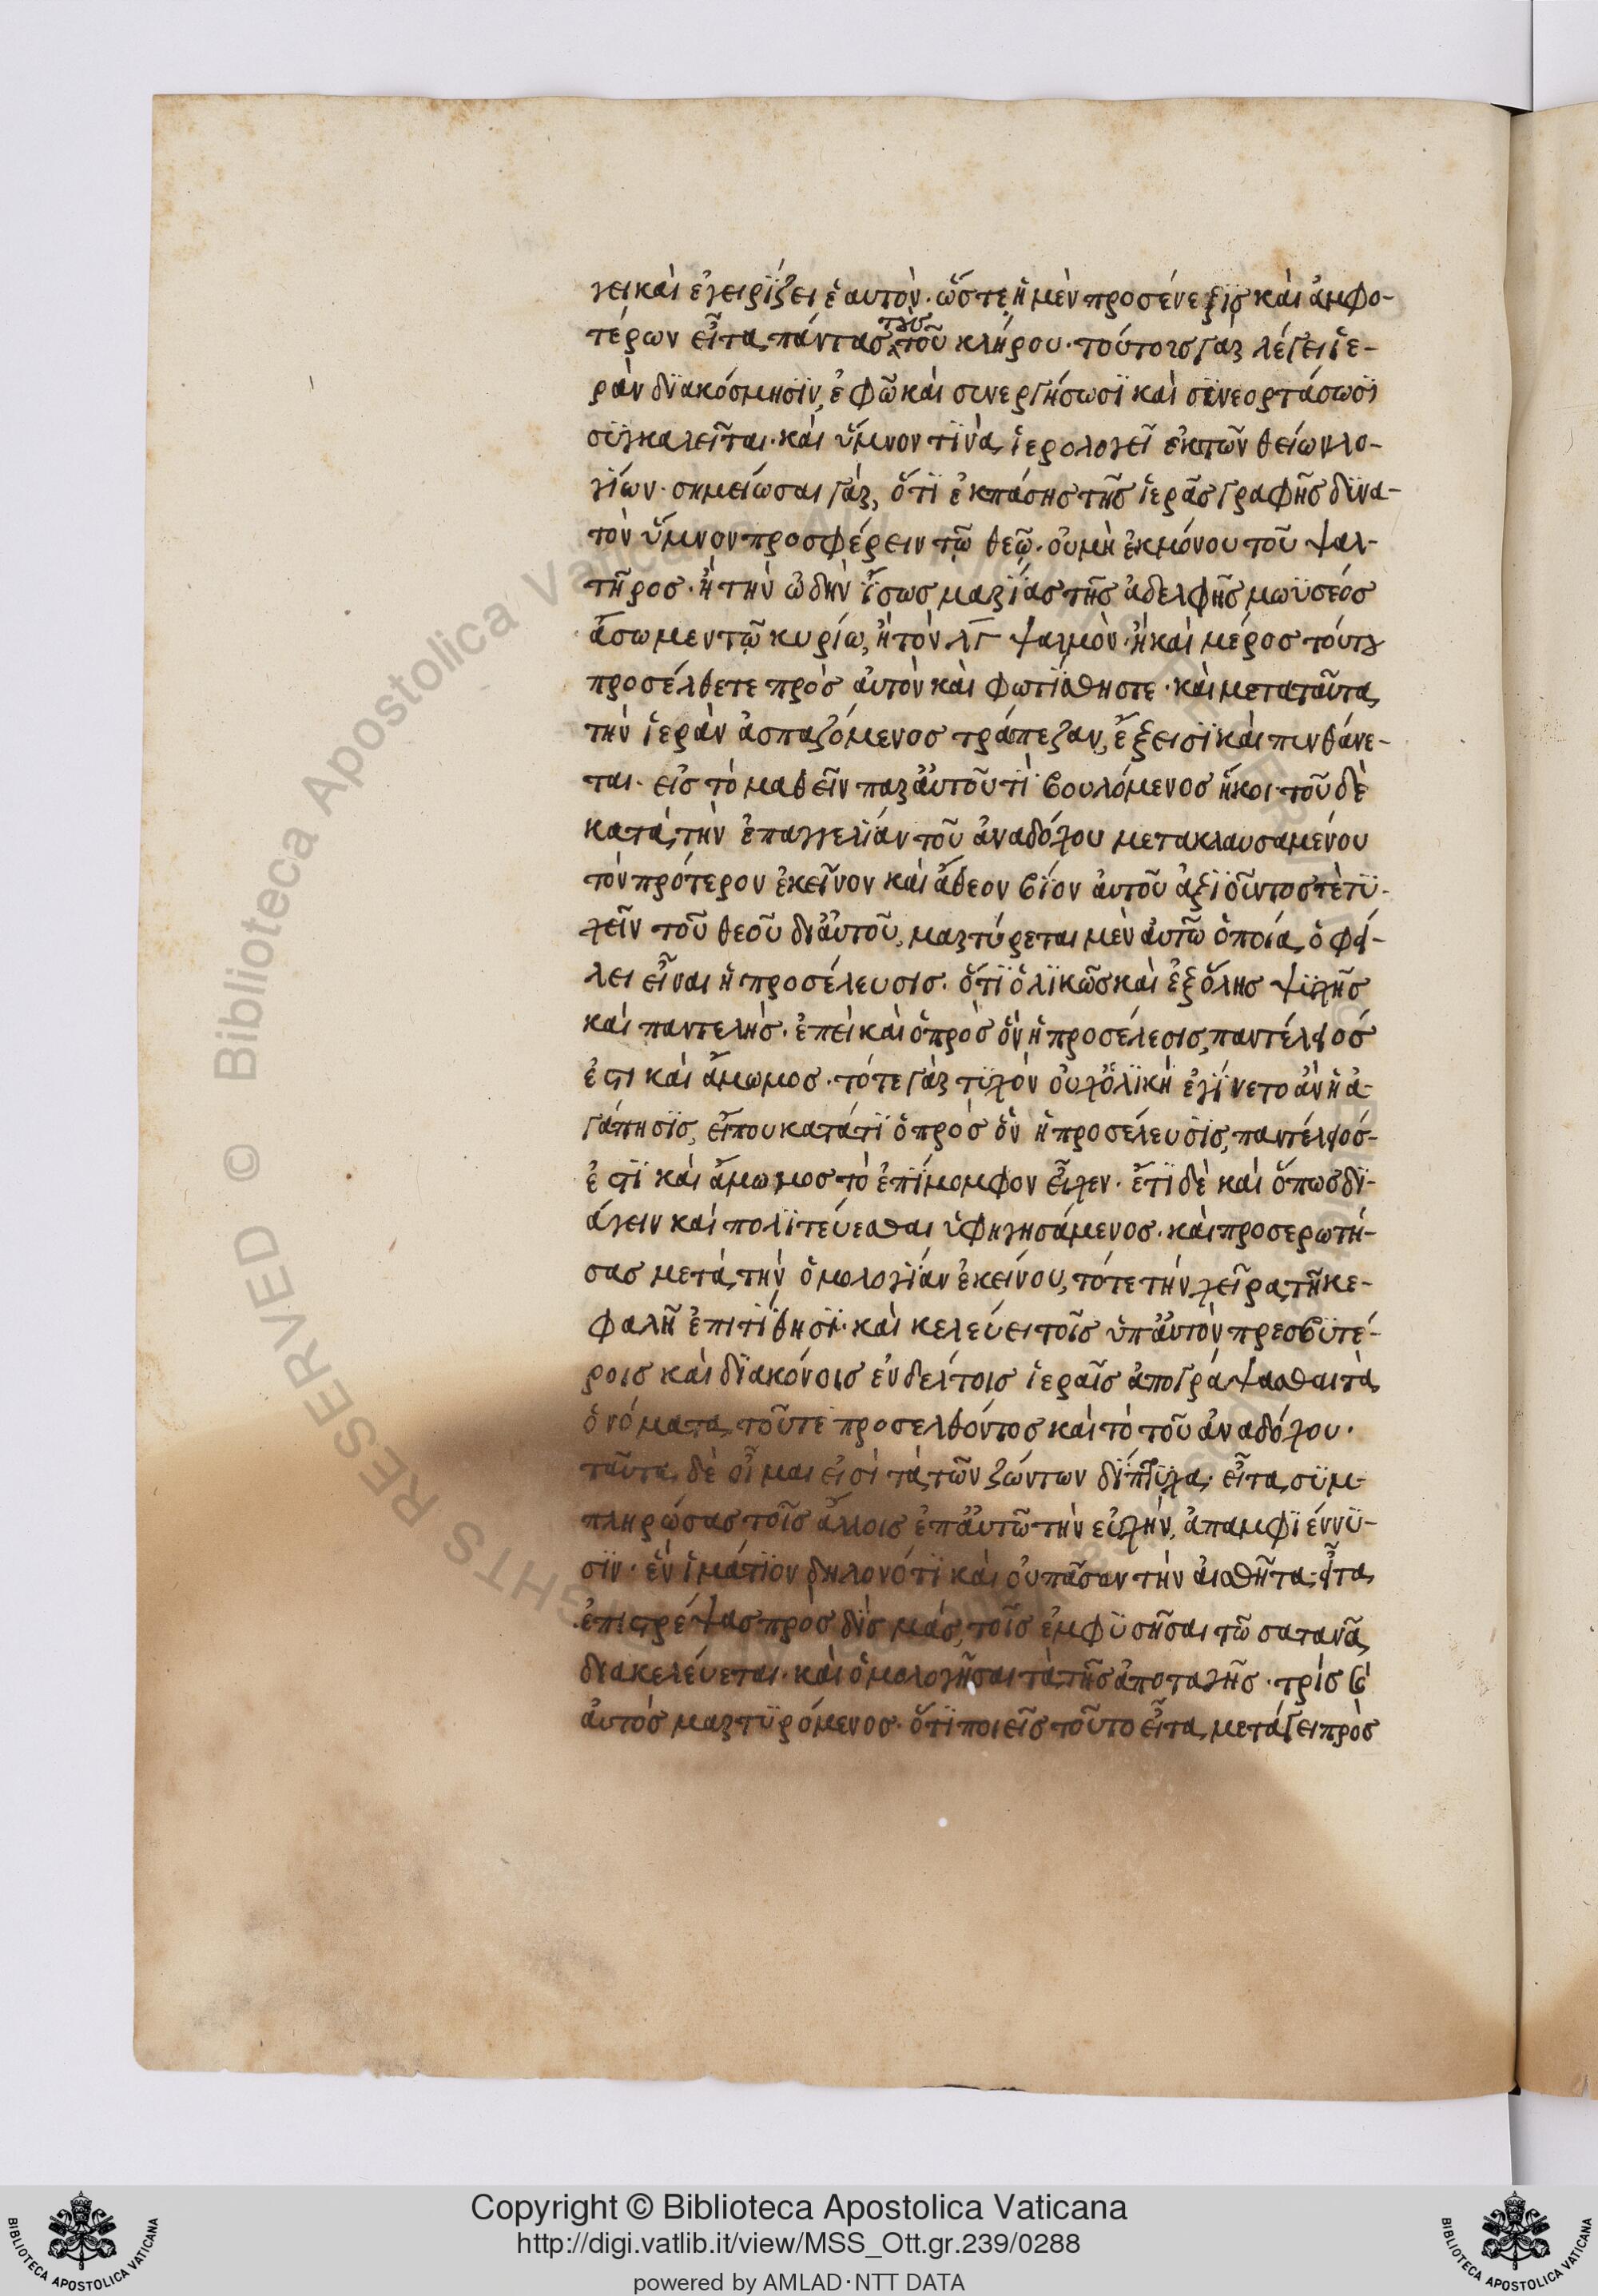 γει καὶ ἐγχειρίζει ἑαυτὸν· ὥστε ἡ μὲν προσένεξϊς καὶ ἀμφο-
τέρων εἶτα πάντας τοὺς τοῦ κλήρου· τούτοις γὰρ λέγει ἱε-
ρὰν δϊακόσμησϊν, ἐφ ὧ καὶ συνεργήσωσϊ καὶ σϋνεορτάσωσϊ
σϋγκαλεῖται· καὶ ὕμνον τϊνὰ ἱερολογεῖ ἐκ τῶν θείων λο-
γίων· σημείωσαι γὰρ, ὅτϊ ἐκ πάσης τῆς ἱερᾶς γραφῆς δϋνα-
τὸν ὕμνον προσφέρειν τῷ θεῷ· οὐ μὴ ἐκ μόνου τοῦ ψαλ-
τῆρος· ἢ τὴν ὠδὴν ἴσως μαρϊας τῆς ἀδελφῆς μωϋσέος
ἄσωμεν τῷ κυρίω, ἢ τὸν λγ ψαλμὸν· ἢ καὶ μέρος τούτου
προσέλθετε πρὸς ἀυτὸν καὶ φωτίσθητε· καὶ μετα ταῦτα
τὴν ἱερὰν ἀσπαζόμενος τράπεζαν, ἔξεισϊ καὶ πυνθάνε-
ται· εἰς τὸ μαθεῖν παρ ἀυτοῦ τί βουλόμενος ἥκοι· τοῦ δὲ
κατὰ τὴν ἐπαγγελίαν τοῦ ἀναδόχου μετακλαυσαμένου
τὸν πρότερον ἐκεῖνον καὶ ἄθεον βίον ἀυτοῦ ἀξϊοῦντος τὲ τϋ-
χεῖν τοῦ θεοῦ δι ἀυτοῦ, μαρτύρεται μὲν ἀυτῶ ὁποία ὀφεί-
λει εἶναι ἡ προσέλευσις· ὅτϊ ὁλϊκῶς καὶ ἐξ ὅλης ψϋχῆς
καὶ παντελὴς· ἐπεὶ καὶ ὁ πρὸς ὃν ἡ προσέλεσις, παντέλειός
ἐστι καὶ ἄμωμος· τότε γὰρ τϋχὸν οὐχ ὁλϊκὴ ἐγίνετο ἂν ἡ ἀ-
γάπησϊς, εἴπου κατά τϊ ὁ πρὸς ὃν ἡ προσέλευσϊς, παντέλειός-
ἐστϊ καὶ ἄμωμος τὸ ἐπίμομφον εἶχεν· ἔτϊ δὲ καὶ ὅπως δϊ-
άγειν καὶ πολϊτεύεσθαι ὑφηγησάμενος· καὶ προσερωτή-
σας μετὰ τὴν ὁμολογίαν ἐκείνου, τότε τὴν χεῖρα τῆ κε-
φαλῆ ἐπιτίθησϊ· καὶ κελεύει τοῖς ὑπ ἀυτὸν πρεσβϋτέ-
ροις καὶ δϊακόνοις ἐν δέλτοις ἱεραῖς ἀπογράψασθαι τὰ
ὀνόματα τοῦ τε προσελθόντος καὶ τὸ τοῦ ἀναδόχου·
ταῦτα δὲ οἶμαι εἰσὶ τὰ τῶν ζώντων δίπτϋχα· εἶτα σϋμ-
πληρώσας τοῖς ἄλλοις ἐπ ἀυτῶ τὴν εὐχὴν, ἀπαμφϊέννϋ-
σϊν· ἓν ἱμάτϊον δηλονότϊ καὶ οὐ πᾶσαν τὴν ἀισθῆτα· εἶτα
ἐπιστρέψας πρὸς δϋσμὰς, τοῖς ἐμφϋσῆσαι τῶ σατανᾶ
διακελεύεται· καὶ ὁμολογῆσαι τὰ τῆς ἀποταγῆς· τρὶς β
ἀυτὸς μαρτϋρόμενος· ὅτϊ ποιεῖς τοῦτο εἶτα μετάγει πρὸς
Copyright © Biblioteca Apostolica Vaticana
http://digi.vatlib.it/view/MSS_Ott.gr.239/0288
powered by AMLAD·NTT DATA